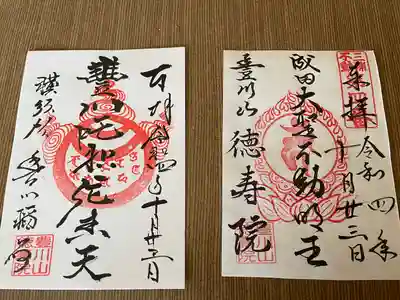 奉拝
令和四年
十月廿三日
成田大聖不動明王
豊川山 徳寿院
奉拝 令和四年十月廿三日
豐川陀枳尼天
横須賀 豊川稲荷
豊川山